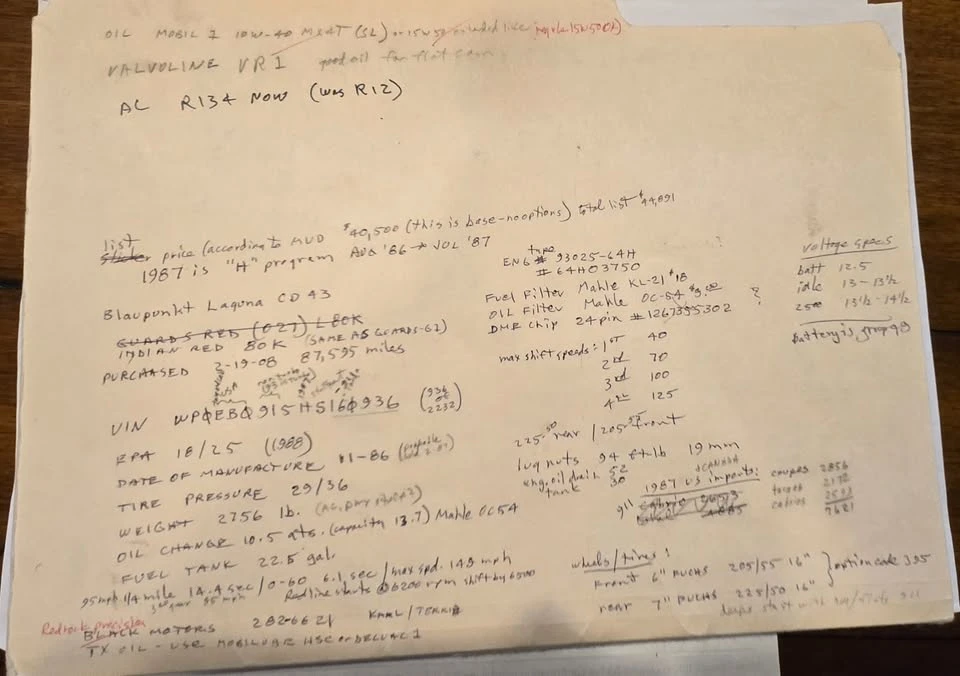 OIL MOBIL 1 10W-40 MX4T (SL) or 15W50
VALVOLINE VR1 good oil for flat cam
AC R134 NOW (was R12)
list price (according to MVD $40,500 (this is base-no options) total list $44,891
1987 is "H" program AUG '86 → JUL '87
Blaupunkt Laguna CD 43
GUARDS RED (027) L80K
INDIAN RED 80K (SAME AS GUARDS-G2)
PURCHASED 2-19-08 87,595 miles
VIN WP0EB0915HS160936 (936 of 2232)
EPA 18/25 (1988)
DATE OF MANUFACTURE 11-86
TIRE PRESSURE 29/36
WEIGHT 2756 lb.
OIL CHANGE 10.5 qts. (capacity 13.7) Mahle OC54
FUEL TANK 22.5 gal.
95mph 1/4 mile 14.4 sec / 0-60 6.1 sec / max spd. 149 mph
Redline starts @ 6200 rpm shift by 6500
Redrock precision
BLACK MOTORS 282-6621 KARL/TERRI
TX OIL - USE MOBILUBE HSC or DELVAC 1
type
ENG # 93025-64H
# 64H03750
Fuel Filter Mahle KL-21 $18
OIL Filter Mahle OC-54 $9.00
DME Chip 24 pin # 1267355302
max shift speeds: 1st 40
2nd 70
3rd 100
4th 125
225-50 rear / 205-55 front
lug nuts 94 ft-lb 19 mm
eng. oil drain 52
tank 30
CANADA
1987 US imports:
911
coupes 2856
targas 2132
cabrios
wheels/tires:
front 6" FUCHS 205/55 16"
rear 7" FUCHS 225/50 16"
option code 395
voltage specs
batt 12.5
idle 13-13½
2500 13½-14½
battery is group 48